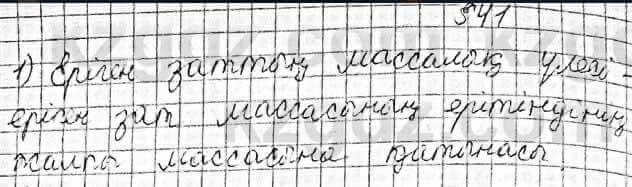 §41
1) Еріген заттың массалық үлесі -
еріген зат массасының ерітіндінің
жалпы массасына қатынасы